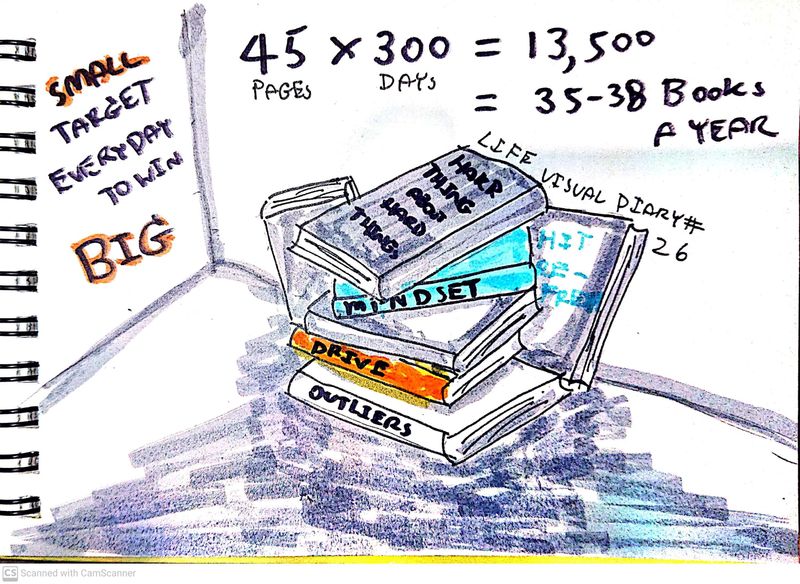 SMALL
TARGET
EVERYDAY
TO WIN
BIG
45 × 300 = 13,500
PAGES DAYS
= 35-38 Books
A YEAR
LIFE VISUAL DIARY#
26
HARD
THING
ABOUT
HARD
THINGS
MINDSET
HIT
DRIVE
OUTLIERS
CS Scanned with CamScanner